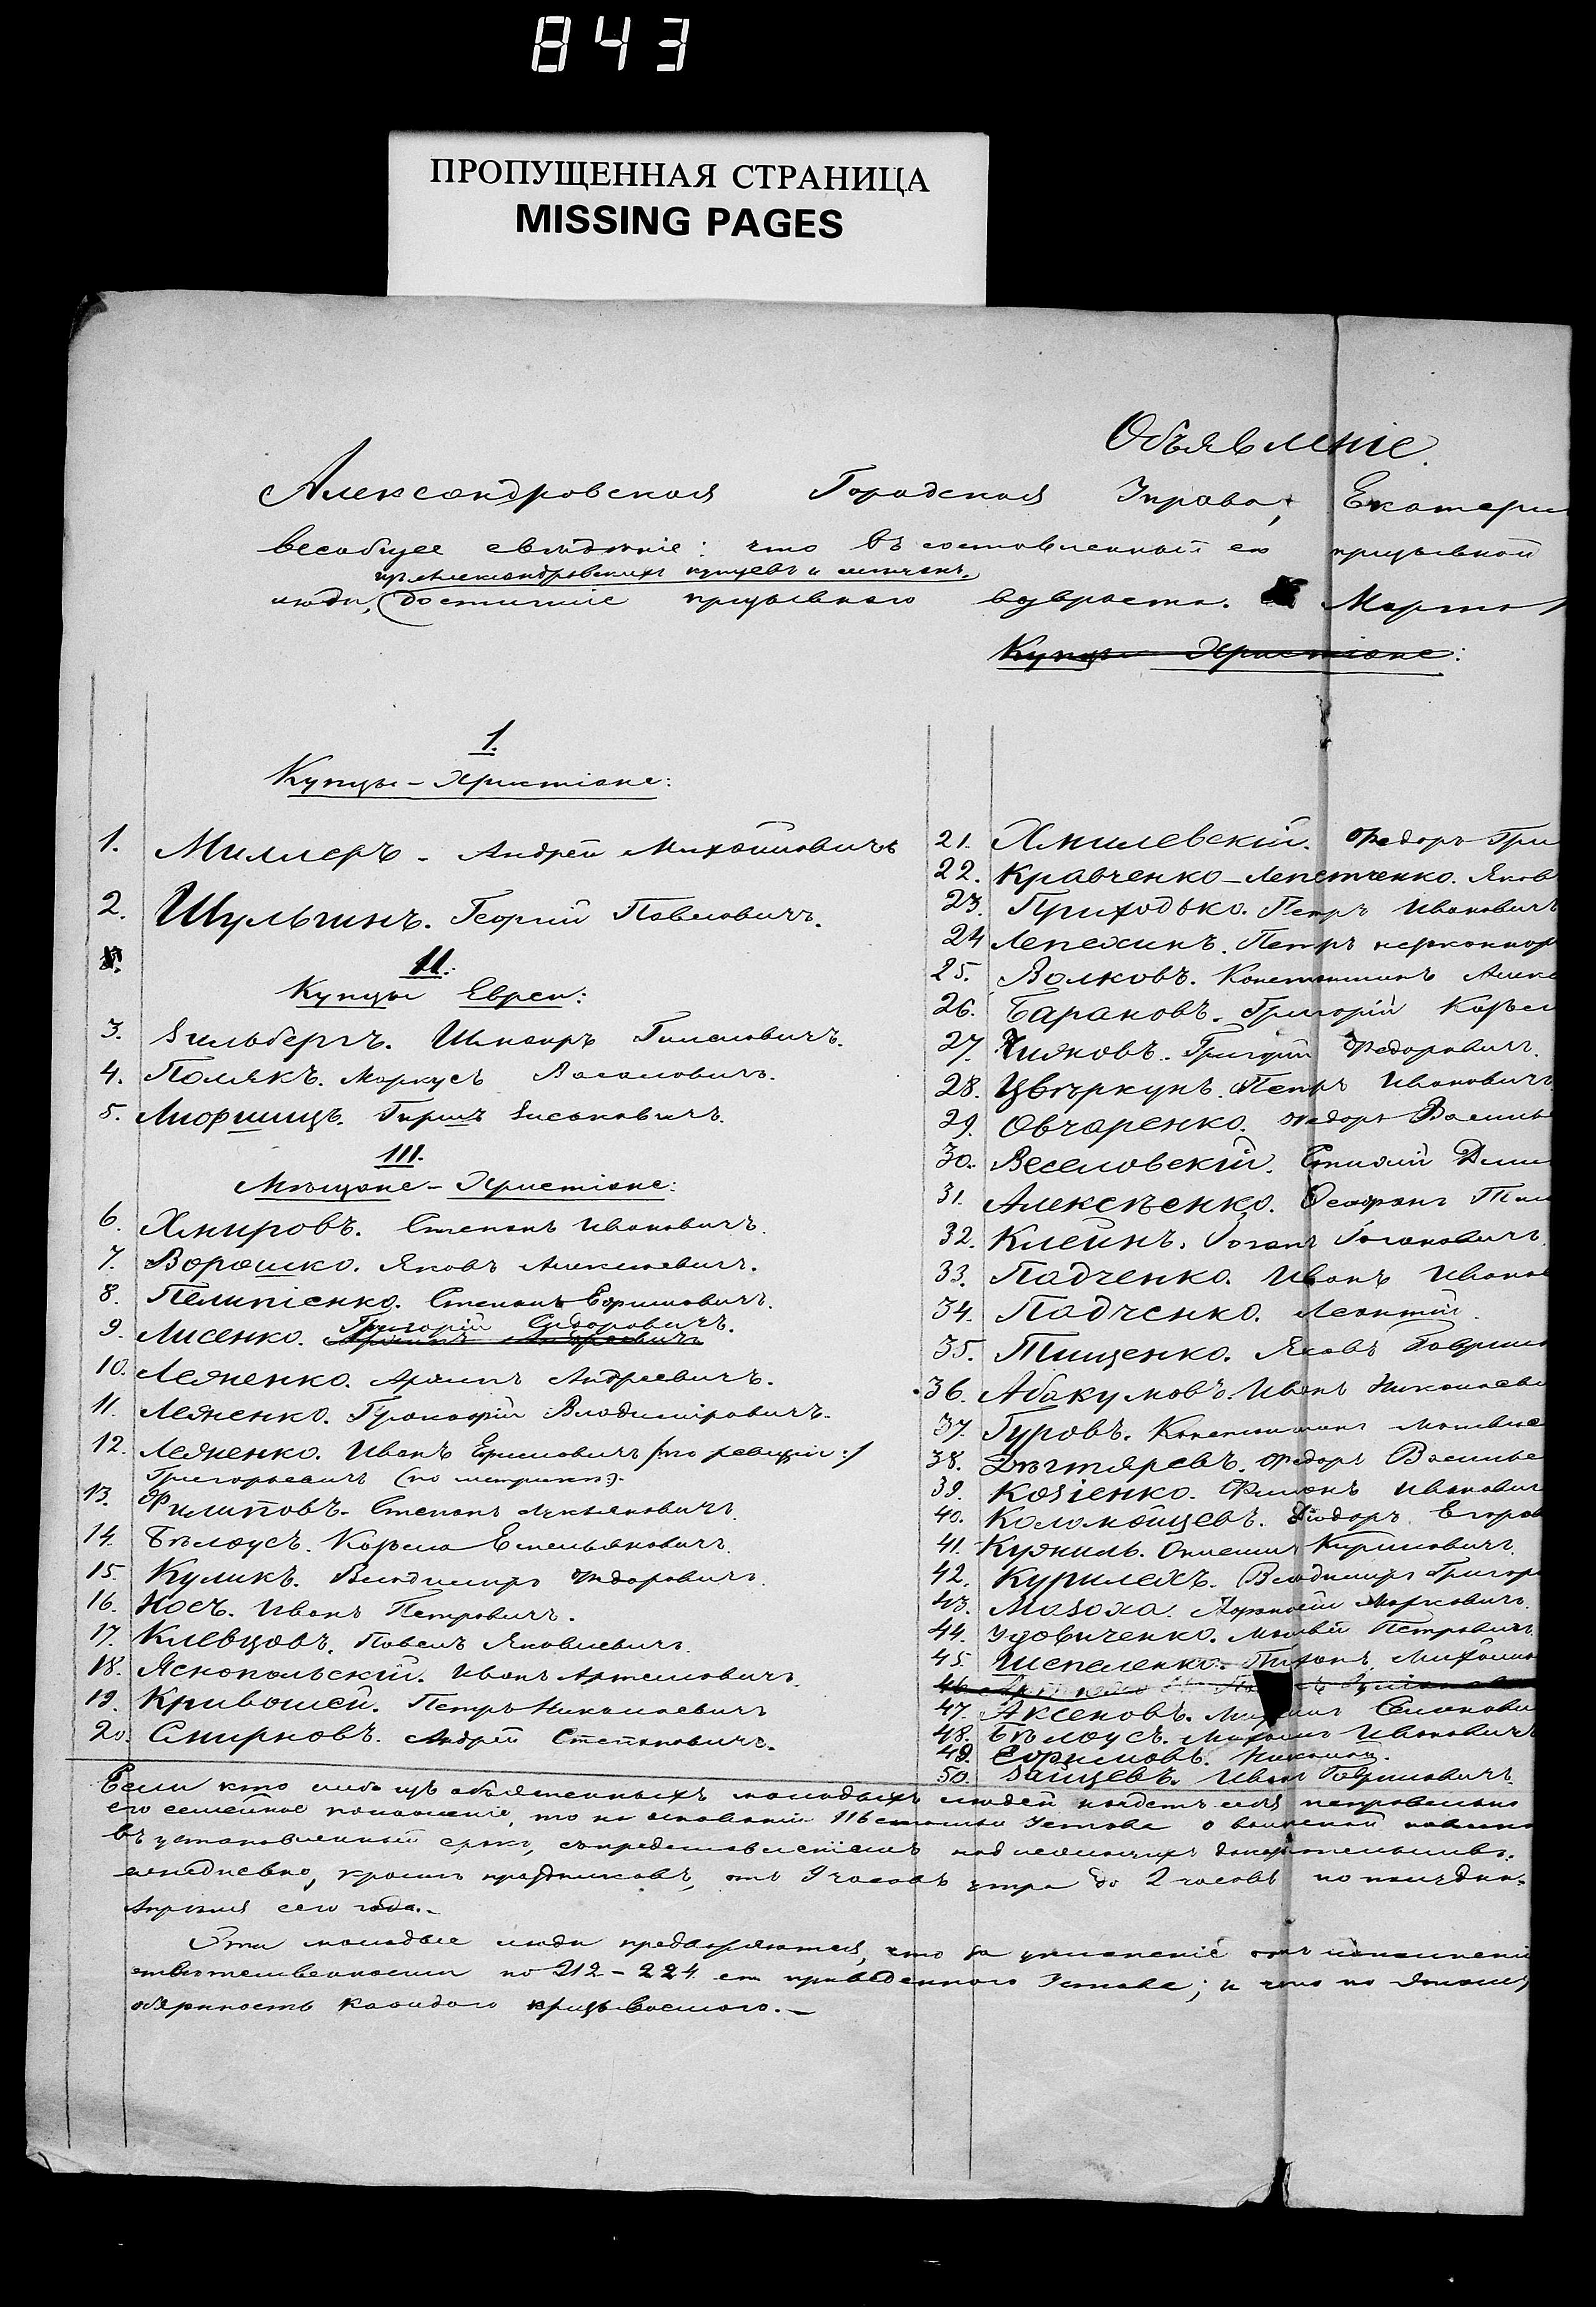 843
ПРОПУЩЕННАЯ СТРАНИЦА
MISSING PAGES
Объявленіе.
Александровская Городская Управа, Екатери
всеобщее свѣдѣніе: что въ составленный ею призывной
изъ Александровскихъ купцовъ и мѣщанъ,
люди, достигшіе призывнаго возраста. Марта
Купцы Христіане:
1.
Купцы-Христіане:
1. Миллеръ. Андрей Михайловичъ
2. Шульгинъ. Георгій Павловичъ.
II.
Купцы Евреи:
3. Зильбергъ. Шмаиръ
4. Полякъ. Маркусъ
5. Лифшицъ. Гиршъ
III.
Мѣщане-Христіане:
6. Хмировъ. Степанъ Ивановичъ.
7. Ворошко. Яковъ Алексѣевичъ.
8. Пелипенко. Степанъ Ефимовичъ.
Григорій Сидоровичъ.
9. Лисенко.
10. Леженко. Андреевичъ.
11. Леженко. Владиміровичъ.
12. Леженко. Иванъ Ефимовичъ /:по ревизіи:/
Григорьевичъ (по метрикѣ).
13. Филиповъ. Степанъ Лукьяновичъ.
14. Бѣлоусъ. Емельяновичъ.
15. Куликъ. Владимиръ Федоровичъ.
16. Носъ. Иванъ Петровичъ.
17. Клевцовъ. Павелъ Яковлевичъ.
18. Яснопольскій. Иванъ Артемовичъ.
19. Кривошей. Петръ Николаевичъ
20. Смирновъ. Андрей Степановичъ.
21. Хмилевскій. Федоръ Гри
22. Кравченко-Лепетченко. Яков
23. Приходько. Петръ Ивановичъ
24 Лепехинъ. Петръ
25. Волковъ. Константинъ Алекс
26. Барановъ. Григорій
27. Чижовъ. Григорій Федоровичъ.
28. Цвѣркунъ. Петръ Ивановичъ.
29. Овчаренко. Федоръ Василь
30. Веселовскій.
31. Алексѣенко.
32. Клейнъ. Іоганъ Іогановичъ.
33. Падченко. Иванъ Ивано
34. Падченко. Леонтій.
35. Тищенко. Яковъ Гаврил
36. Абакумовъ. Иванъ Николаеви
37. Гуровъ. Константинъ Матвѣе
38. Дѣгтяревъ. Федоръ Василье
39. Козіенко. Филонъ Иванович
40. Коломойцевъ. Федоръ Егоров
41. Кирилловичъ.
42. Курилехъ. Владимиръ Григор
43. Мазоха. Марковичъ.
44. Удовиченко. Матвѣй Петровичъ.
45. Шепеленко. Тихонъ Михайло
47. Аксеновъ. Семенови
48. Бѣлоусъ. Михаилъ Ивановичъ
49. Ефимовъ. Николай.
50. Зайцевъ. Иванъ Гавриловичъ.
Если кто либо изъ объявленныхъ молодыхъ людей найдетъ неправильно
его семейное положеніе, то на основаніи 116 статьи Устава о воинской повинно
въ установленный срокъ, съ представленіемъ надлежащихъ доказательствъ.
ежедневно, кромѣ праздниковъ, отъ 9 часовъ утра до 2 часовъ по полудни.
Апрѣля сего года.-
Эти молодые люди предваряются, что за уклоненіе отъ исполненія
отвѣтственности по 212-224 ст приведеннаго Устава; и что по этому
обязанность каждаго призываемаго.-